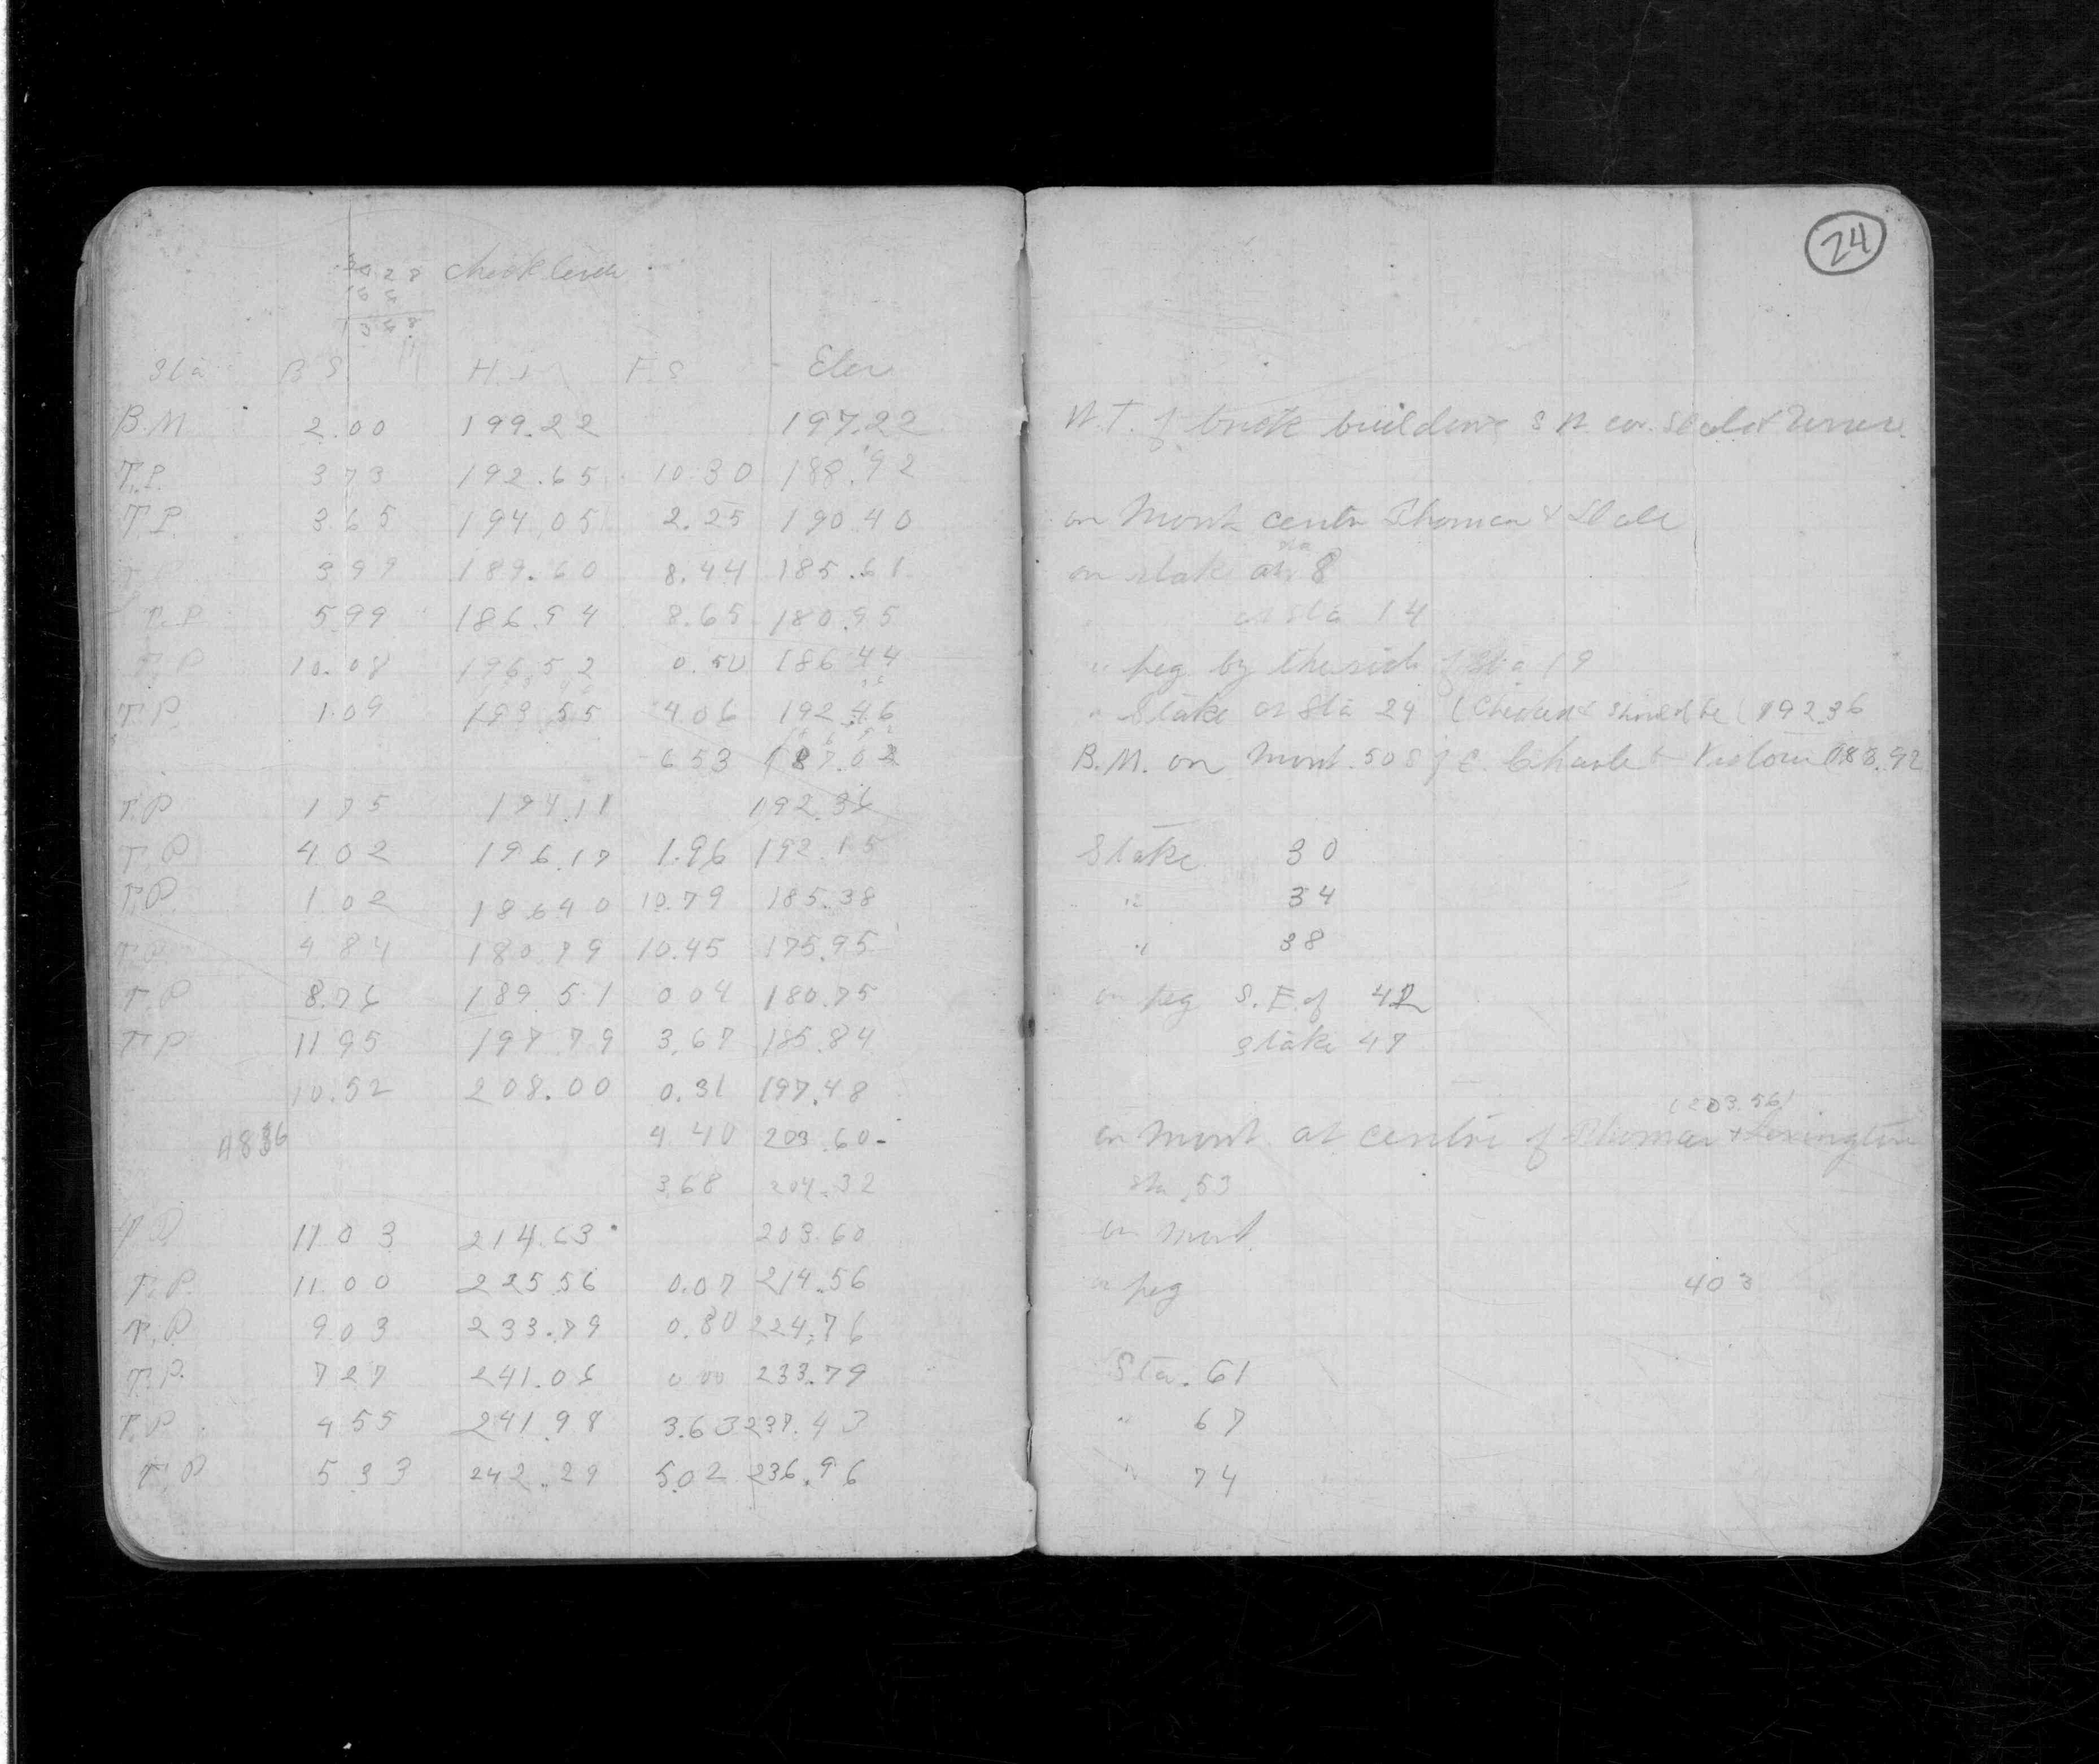 24
check levels
Sta B S H. I F. S Elev
B.M 2.00 199.22 197.22 W.T. of brick building S W. cor. Dale &
T.P. 3 73 192.65 10.30 188.92
T.P. 3 65 194.05 2.25 190.40 on Mont centre Thomas & Dale
T.P. 3 99 189.60 8.44 185.61 on stake at sta 8
T.P 5.99 186.94 8.65 180.95 " at sta 14
T.P 10.08 196.52 0.50 186.44 " peg by the side of Sta 19
T.P. 1.09 193.55 4.06 192.46 " Stake at Sta 24 (Checked should be (192.36
6 53 187.02 B.M. on Mont. 50 S of C. Charles & Victoria (188.92
T.P 1 75 194.11 192.36
T.P 4.02 196.17 1.96 192.15 Stake 30
T.P. 1.02 186 40 10.79 185.38 " 34
T.P. 4 84 180.79 10.45 175.95 " 38
T.P 8.76 189.51 0.04 180.75 on peg S.E. of 42
T.P 11 95 197 79 3.67 185.84 stake 47
10.52 208.00 0.31 197.48
(203.56)
4.40 203.60- on mont. at centre of Thomas & Lexington
3.68 204.32 sta 53
T.P. 11.03 214.63 203.60 on mont.
T.P. 11.00 225.56 0.07 214.56 on peg 403
T.P. 9 03 233.79 0.80 224.76
T.P. 7 27 241.06 0 00 233.79 Sta. 61
T.P. 4 55 241.98 3.63 237.43 " 67
T.P 5 33 242.29 5.02 236.96 " 74